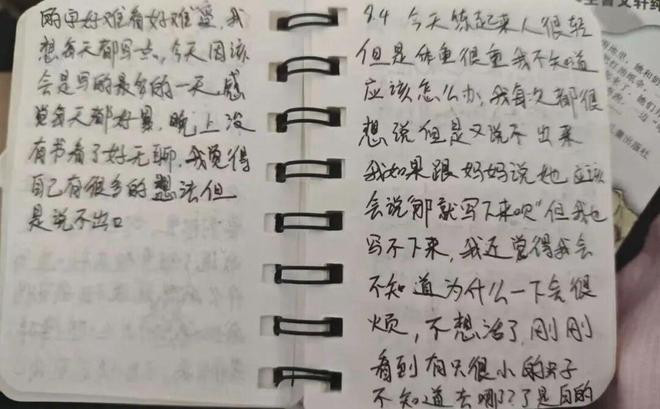 雨字好难看好难寫，我
想每天都写一点，今天因该
会是写的最多的一天，感
觉每天都好累，晚上没
有书看了好无聊，我觉得
自己有很多的想法但
是说不出口
9.4 今天练起来人很轻
但是体重很重我不知道
应该怎么办，我每次都很
想说但是又说不出来
我如果跟妈妈说她应该
会说"那就写下来吧"但我也
写不下来，我还觉得我会
不知道为什么一下会很
烦，不想活了，刚刚
看到有只很小的
不知道去哪了了是白的
儿童出版社